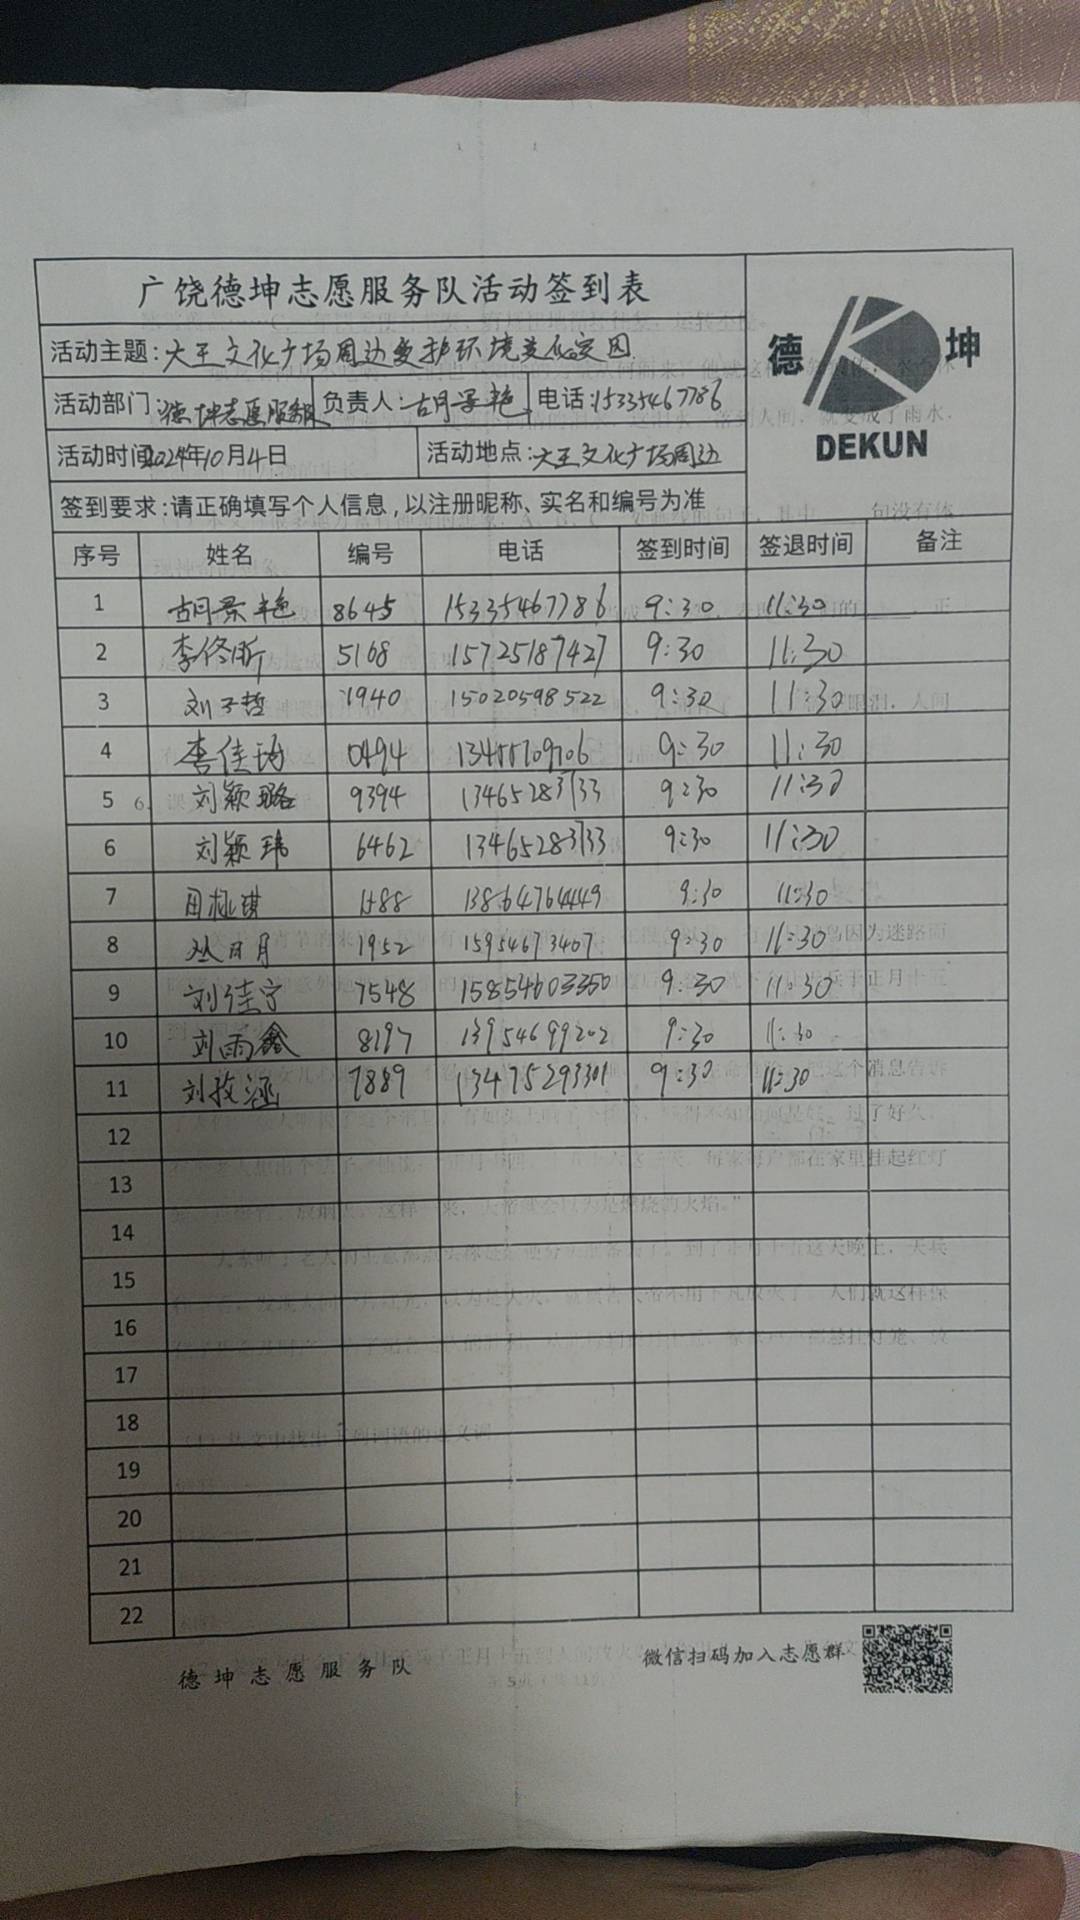 广饶德坤志愿服务队活动签到表
德 坤
DEKUN
活动主题:大王文化广场周边爱护环境美化家园
活动部门:德坤志愿服务队 负责人:胡景艳 电话:15335467786
活动时间2024年10月4日 活动地点:大王文化广场周边
签到要求:请正确填写个人信息,以注册昵称、实名和编号为准
序号 姓名 编号 电话 签到时间 签退时间 备注
1 胡景艳 8645 15335467786 9:30 11:30
2 李佟昕 5168 15725187427 9:30 11:30
3 刘子哲 1940 15020598522 9:30 11:30
4 李佳 0494 9:30 11:30
5 刘颖璐 9394 13465283733 9:30 11:30
6 刘颖玮 6462 13465283733 9:30 11:30
7 13864764449 9:30 11:30
8 丛日月 1952 15954673407 9:30 11:30
9 刘佳宁 7548 15854603350 9:30 11:30
10 刘雨鑫 8197 13954699202 9:30 11:30
11 刘孜涵 7889 13475293301 9:30 11:30
12
13
14
15
16
17
18
19
20
21
22
德坤志愿服务队
微信扫码加入志愿群